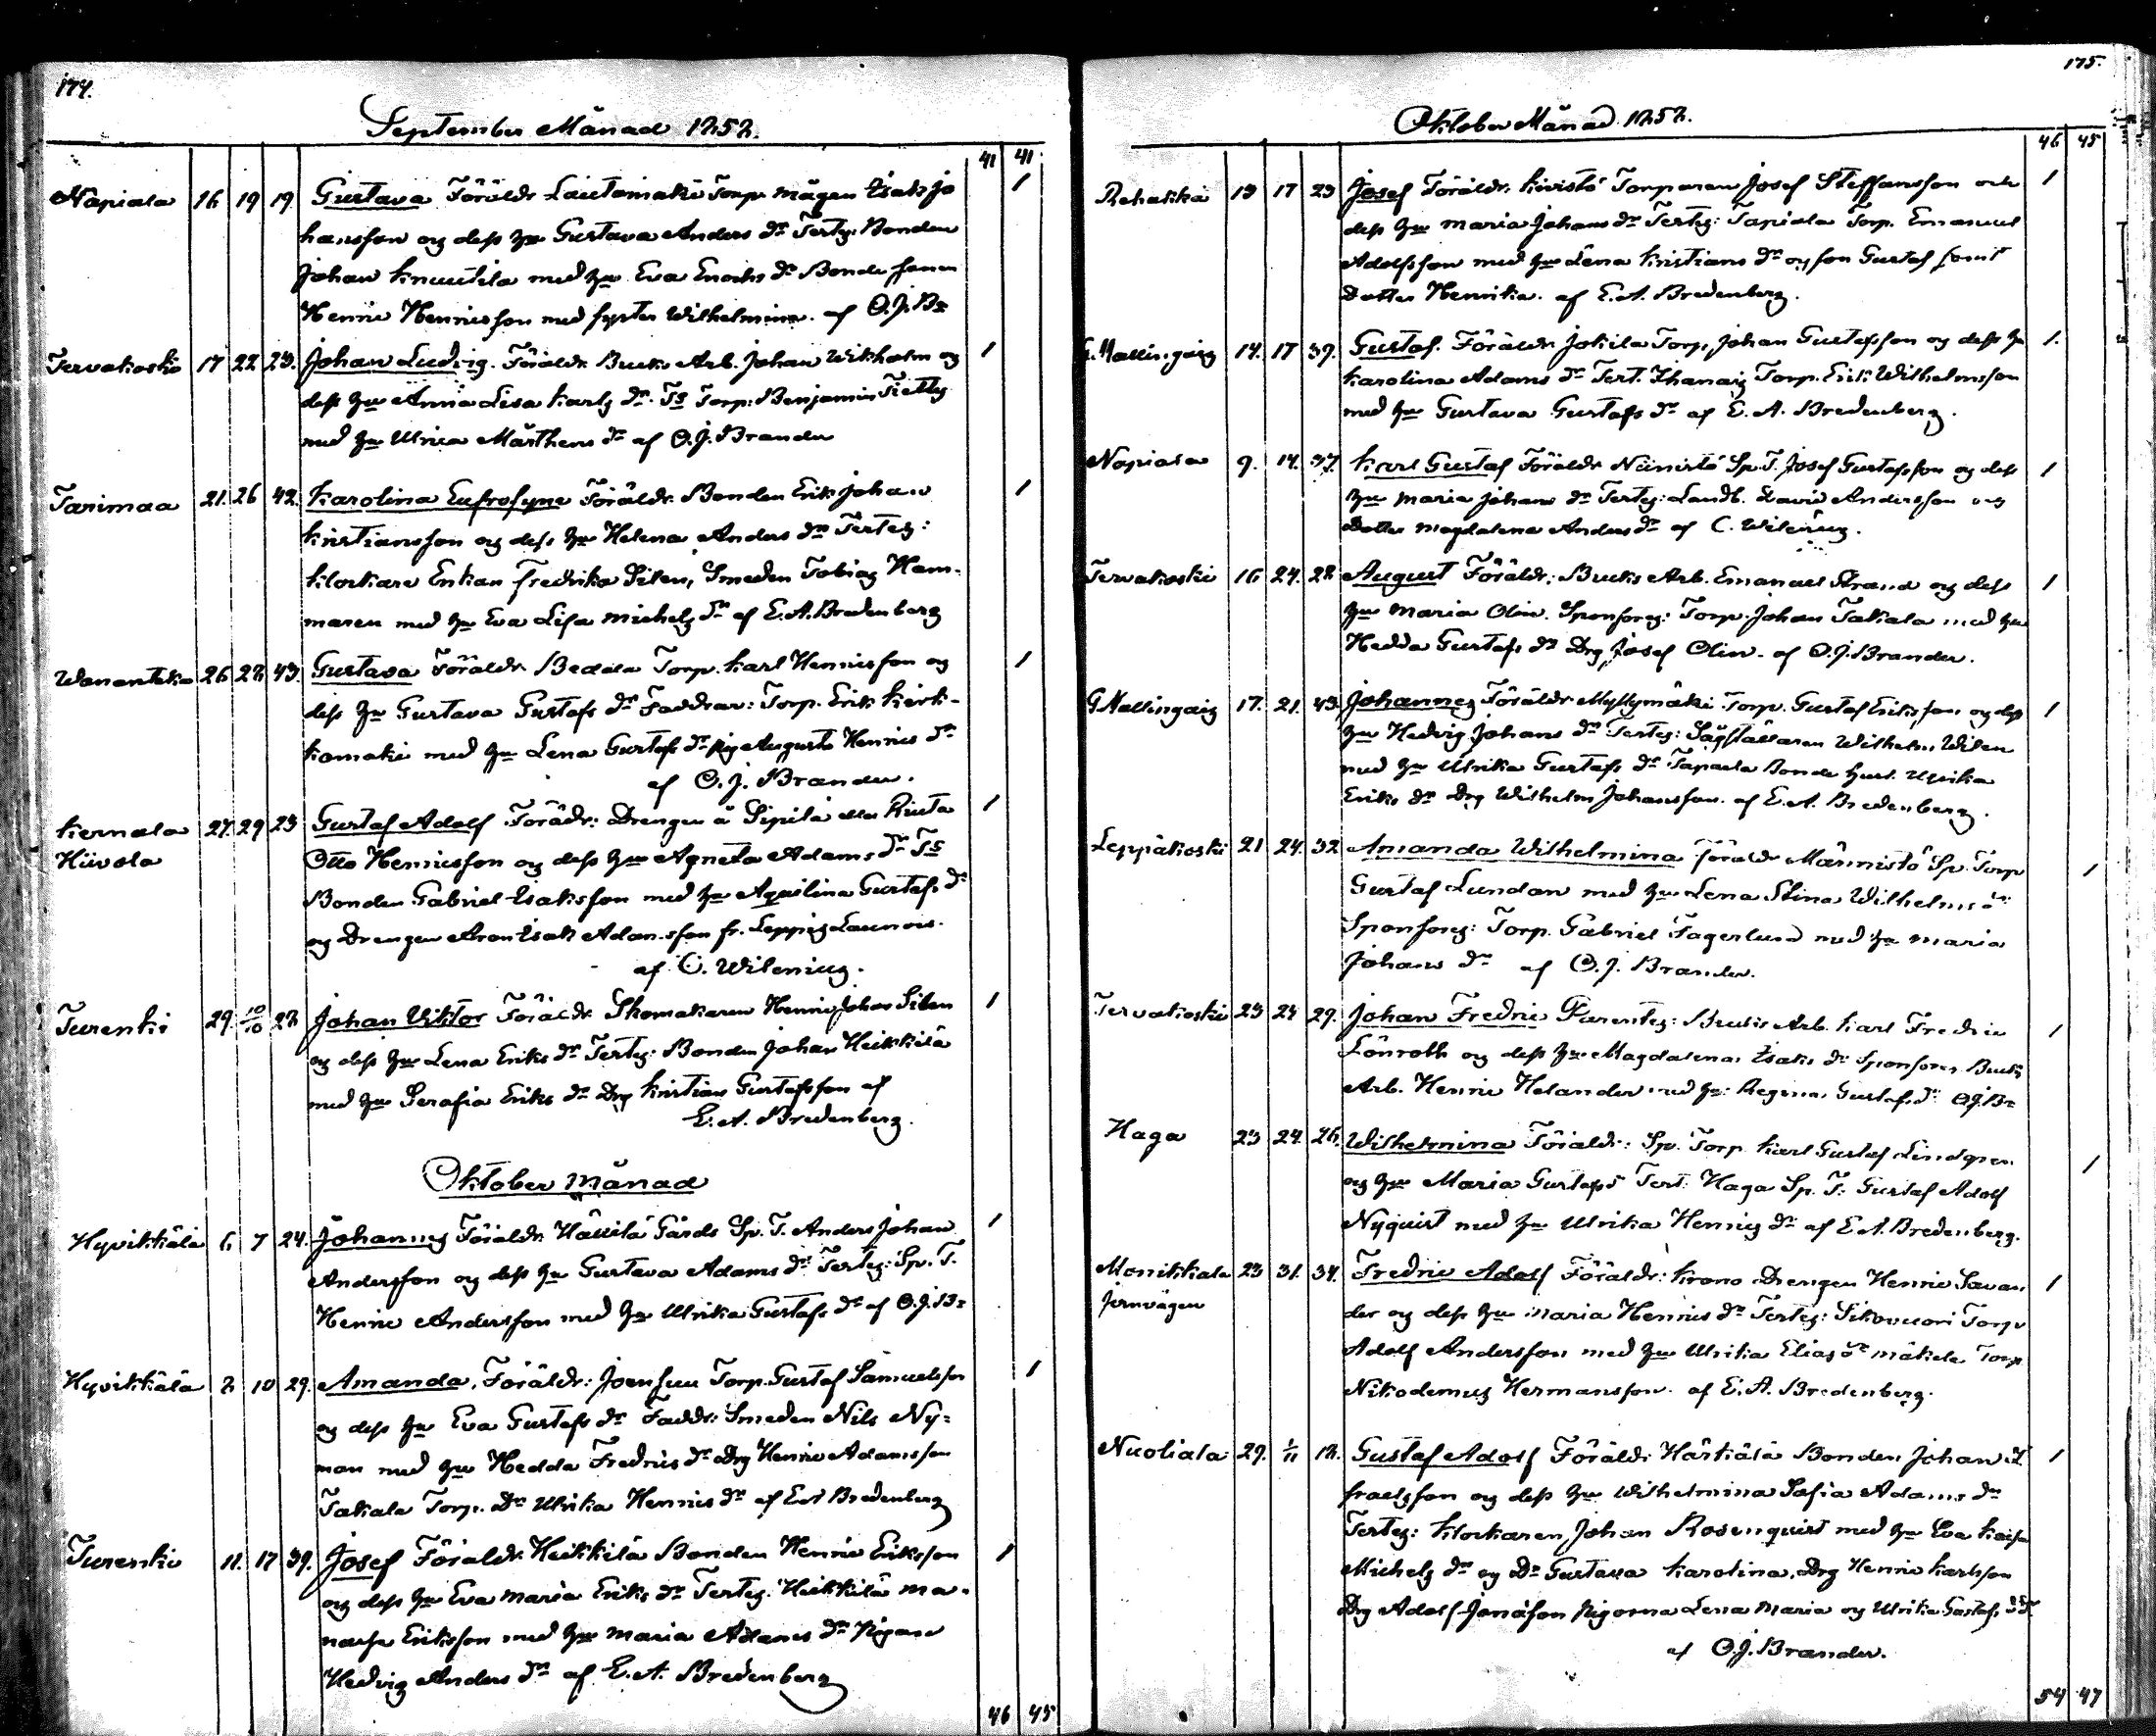 174.
September Månad 1852.
41 41
Napiala 16 19 19. Gustava Föräldr. Lautamäki Torp. mågen Isak Jo
hansson og dess hu Gustava Anders dr Testeg: Bonden
Johan Knuutila med hu Eva Enochs dr Bonde sonen
Henric Henricsson med syster Wilhelmina. af O.J.Br 1
Tervakoski 17 22 23. Johan Ludvig. Föräldr. Bruks Arb. Johan Wikholm og 1
dess hu Anna Lisa Karls dr. Ts Torp: Benjamin
med hu Ulrica Mårthens dr af O.J. Brander
Tarimaa 21. 26 42. Karolina Eufrosyne Föräldr. Bonden Erik Johan 1
Kristiansson og dess hu Helena Anders dr Testeg:
Klockare Enkan Fredrika Silen, Smeden Tobias Ham-
maren med hu Eva Lisa Michels dr af E.A. Bredenberg
Wanantaka 26 28 43. Gustava Föräldr. Bedala Torp. Karl Henricsson og 1
dess hu Gustava Gustafs dr Faddrar: Torp. Erik Kerk-
komäki med hu Lena Gustafs dr pig Augusta Henrics dr
af O.J. Brander.
Kernala 27. 29 23 Gustaf Adolf Förädr: Drengen å Sipilä eller 1
Hiivola Otto Henricsson og dess hu Agneta Adams dr Ts
Bonden Gabriel Isaksson med hu Aquilina Gustafs dr
og Drengen Aron Isak Adamsson fr. Leppis
af C. Wilenius.
Turenki 29. 10/10 28 Johan Viktor Föräldr. Skomakaren Henric Johan Silen 1
og dess hu Lena Eriks dr Testeg: Bonden Johan Heikkilä
med hu Serafia Eriks dr Drg Kristian Gustafsson af
E.A. Bredenberg.
Oktober Månad
Hyvikkälä 6 7 24. Johannes Föräldr. Gårds Sp. T. Anders Johan 1
Andersson og dess hu Gustava Adams dr Testeg: Sp. T.
Henric Andersson med hu Ulrika Gustafs dr af O.J.Br
Hyvikkälä 8 10 29. Amanda. Föräldr: Joensuu Torp. Gustaf Samuelsson 1
og dess hu Eva Gustafs dr Faddr: Smeden Nils Ny=
man med hu Hedda Fredrics dr Drg Henric Adamsson
Takala Torp. Dr Ulrika Henrics dr af E.A. Bredenberg
Turenki 11. 17 39. Josef Föräldr. Heikkilä Bonden Henric Eriksson 1
og dess hu Eva Maria Eriks dr Testeg: Heikkilä
Eriksson med hu Maria Adams dr Pigan
Hedvig Anders dr af E.A. Bredenberg
46 45
175.
Oktober Månad 1852.
46 45
Rehakka 13 17 23 Josef Föräldr. Kivistö Torparen Josef Steffansson och 1
dess hu Maria Johans dr Testeg: Tapiala Torp. Emanuel
Adolfsson med hu Lena Kristians dr og son Gustaf samt
Dotter Henrika. af E.A. Bredenberg.
14. 17 39. Gustaf. Föräldr. Jokila Torp. Johan Gustafsson og dess hu 1.
Karolina Adams dr Test. Torp. Erik Wilhelmsson
med hu Gustava Gustafs dr af E.A. Bredenberg.
Napiala 9. 14. 37. Karl Gustaf Föräldr Niinistö Sp. T. Josef Gustafsson og dess 1
hu Maria Johans dr Testeg: Landb. David Andersson och
Dotter Magdalena Anders dr af C. Wilenius.
Tervakoski 16 24. 28 August Föräldr: Bruks Arb. Emanuel Strand og dess 1
hu Maria Olin. Sponsores: Torp. Johan Takala med hu
Hedda Gustafs dr Drg Josef Olin. af O.J. Brander.
17. 21. 43. Johannes Föräldr Myllymäki Torp. Gustaf Eriksson og dess 1
hu Hedvig Johans dr Testeg: Wilhelm Wilen
med hu Ulrika Gustafs dr Tapiala Bonde hust. Ulrika
Eriks dr Drg Wilhelm Johansson. af E.A. Bredenberg.
Leppäkoski 21 24. 32 Amanda Wilhelmina Föräldr Männistö Sp. Torp 1
Gustaf Lundan med hu Lena Stina Wilhelms dr
Sponsores: Torp. Gabriel Fagerlund med hu Maria
Johans dr af O.J. Brander.
Tervakoski 23 24 29. Johan Fredric Parentes: Bruks Arb. Karl Fredric 1
Lönroth og dess hu Magdalena Isaks dr Sponsores Bruks
Arb. Henric Helander med hu: Regina Gustafs dr O.J.Br
Haga 23 24. 26. Wilhelmina Föräldr: Sp. Torp. Karl Gustaf Lindqren 1
og hu Maria Gustafs d Test: Haga Sp. T. Gustaf Adolf
Nyquist med hu Ulrika Henrics dr af E.A. Bredenberg.
Monikkala 23 31. 34. Fredric Adolf Föräldr: Krono Drengen Henric Savan 1
Jernvägen der og dess hu Maria Henrics dr Testeg: Sikovuori Torp
Adolf Andersson med hu Ulrika Elias dr Mäkelä Torp
Nikodemus Hermansson. af E.A. Bredenberg.
Nuoliala 29. 1/11 18. Gustaf Adolf Föräldr. Härkälä Bonden Johan I 1
sraelsson og dess hu Wilhelmina Sofia Adams dr
Testeg: Klockaren Johan Rosenquist med hu Eva Kaisa
Michels dr og Dr Gustava Karolina, Drg Henric Karlsson
Drg Adolf Jonasson Pigorna Lena Maria og Ulrika Gustafs
af O.J. Brander.
54 47